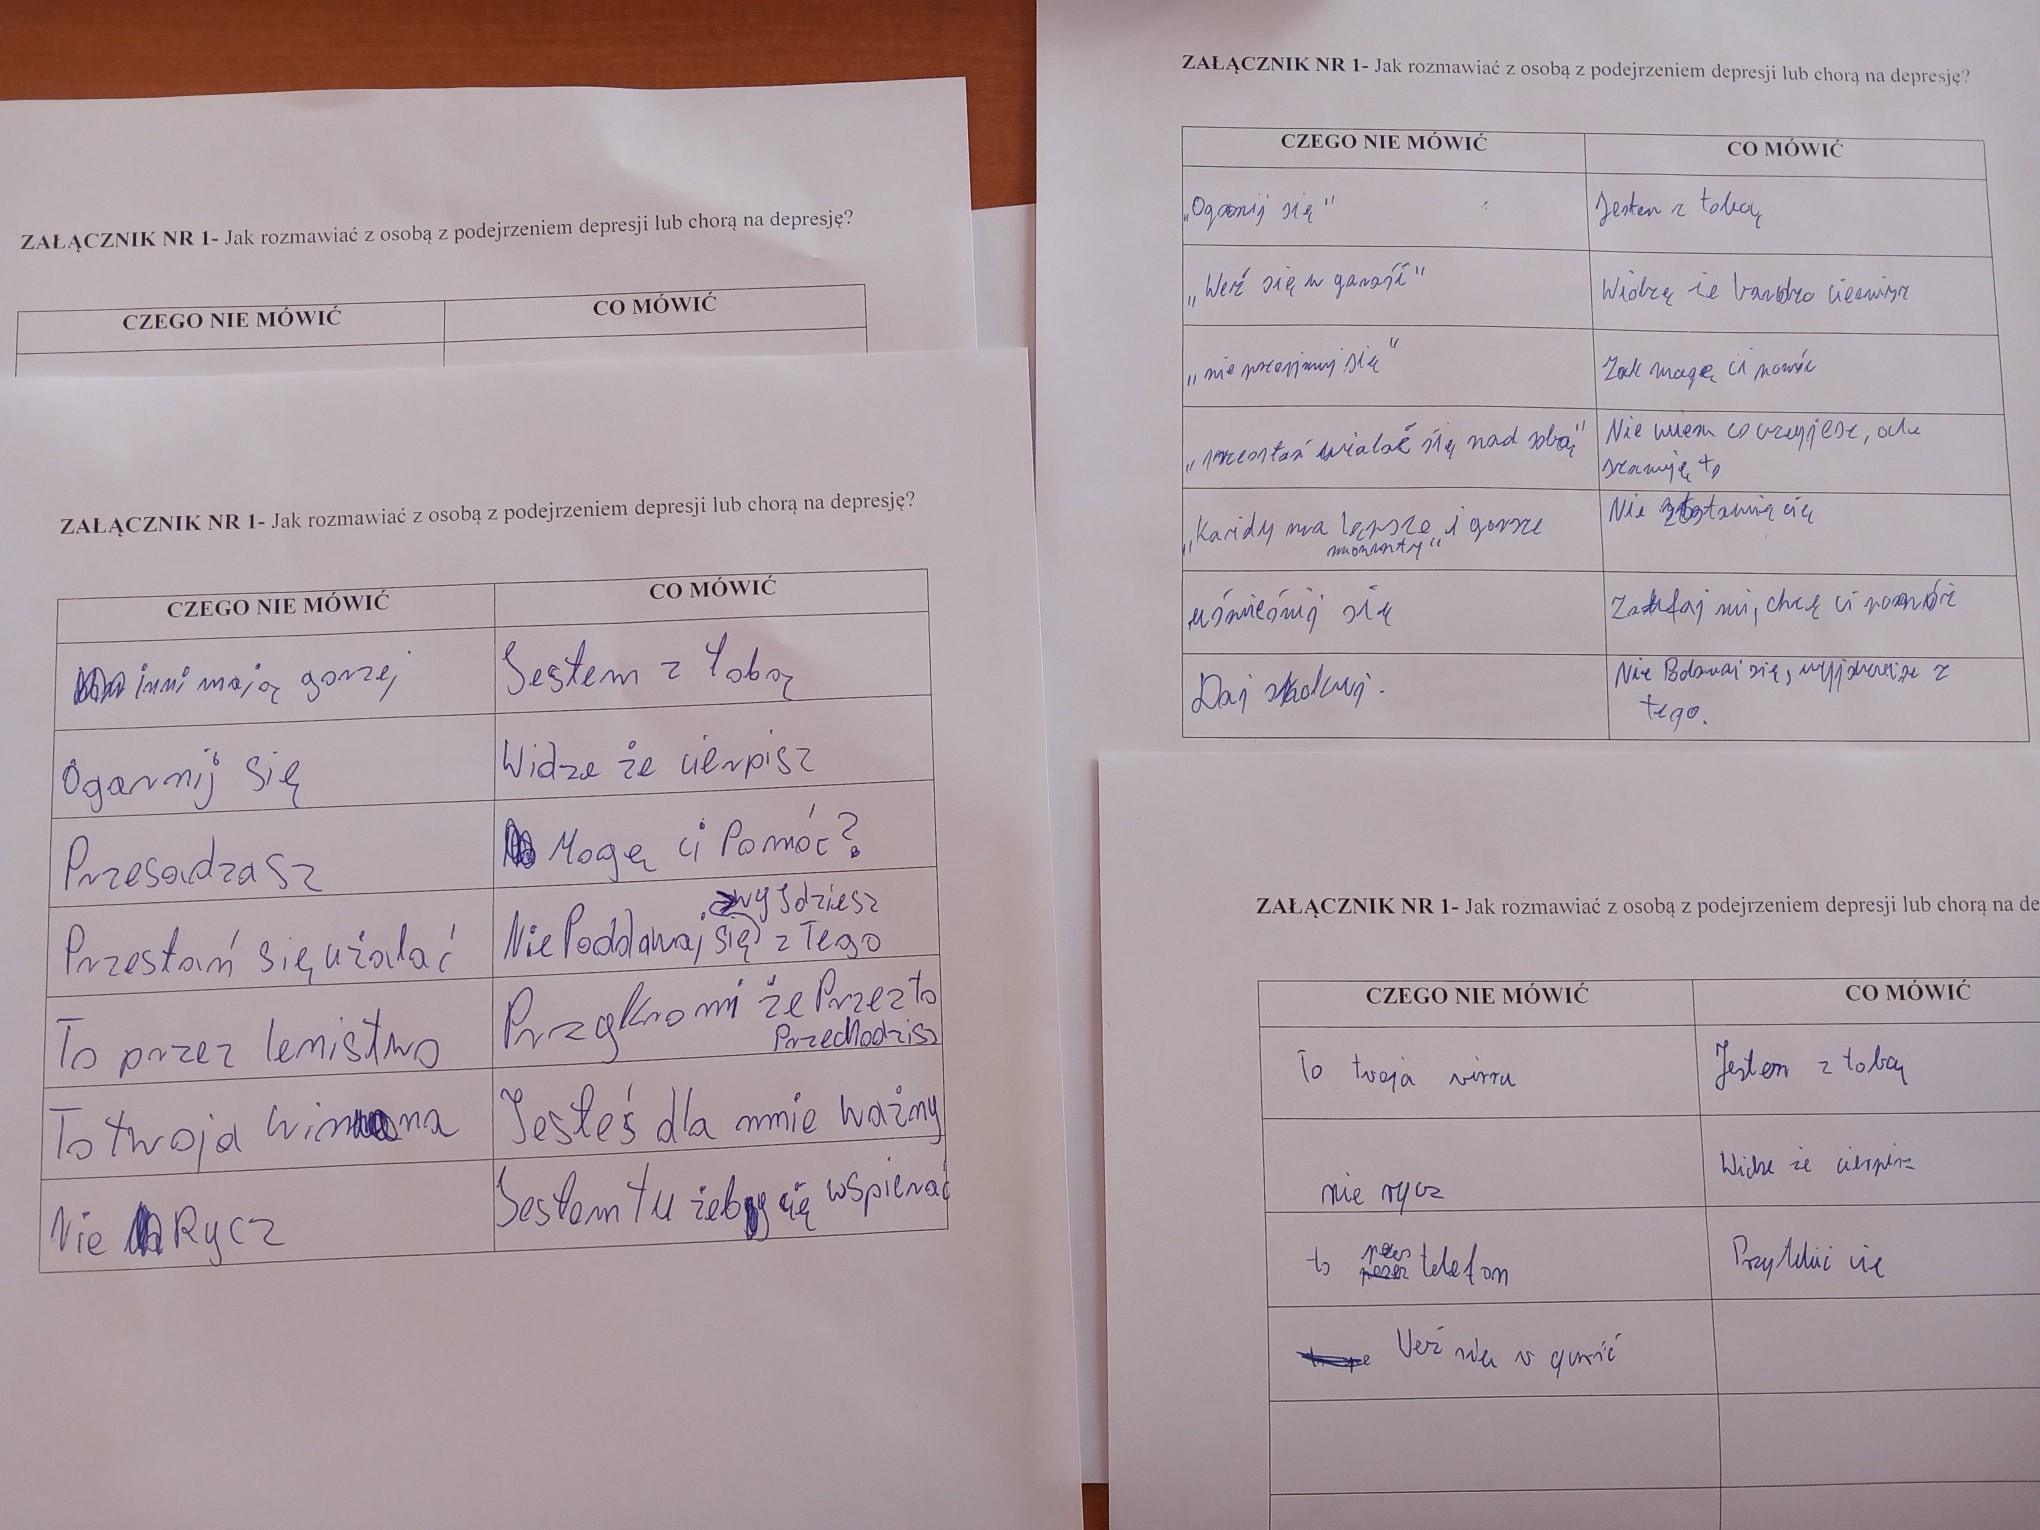 ZAŁĄCZNIK NR 1- Jak rozmawiać z osobą z podejrzeniem depresji lub chorą na depresję?
CZEGO NIE MÓWIĆ
CO MÓWIĆ
ZAŁĄCZNIK NR 1- Jak rozmawiać z osobą z podejrzeniem depresji lub chorą na depresję?
CZEGO NIE MÓWIĆ
CO MÓWIĆ
inni mają gorzej
Jestem z tobą
Ogarnij się
Widze że cierpisz
Przesadzasz
Mogę ci Pomóc?
Przestań się użalać
Nie Poddawaj się wyjdziesz
z Tego
To przez lenistwo
Przykro mi że Przez to
Przechodzisz
To twoja wina
Jesteś dla mnie ważny
Nie Rycz
Jestem tu żeby cię wspierać
ZAŁĄCZNIK NR 1- Jak rozmawiać z osobą z podejrzeniem depresji lub chorą na depresję?
CZEGO NIE MÓWIĆ
CO MÓWIĆ
„Ogarnij się"
Jestem z tobą
„Weź się w garść"
Widzę że bardzo cierpisz
„nie przejmuj się"
Jak mogę ci pomóc
„przestań użalać się nad sobą"
Nie wiem co czujesz, ale
szanuję to
„Każdy ma lepsze i gorsze
momenty"
Nie zostawię cię
uśmiechnij się
Zaufaj mi, chcę ci pomóc
Daj spokój.
Nie Poddawaj się, wyjdziesz z
tego.
ZAŁĄCZNIK NR 1- Jak rozmawiać z osobą z podejrzeniem depresji lub chorą na de
CZEGO NIE MÓWIĆ
CO MÓWIĆ
To twoja wina
Jestem z tobą
nie rycz
Widze że cierpisz
to przez telefon
Przytulić cie
Weź się w garść